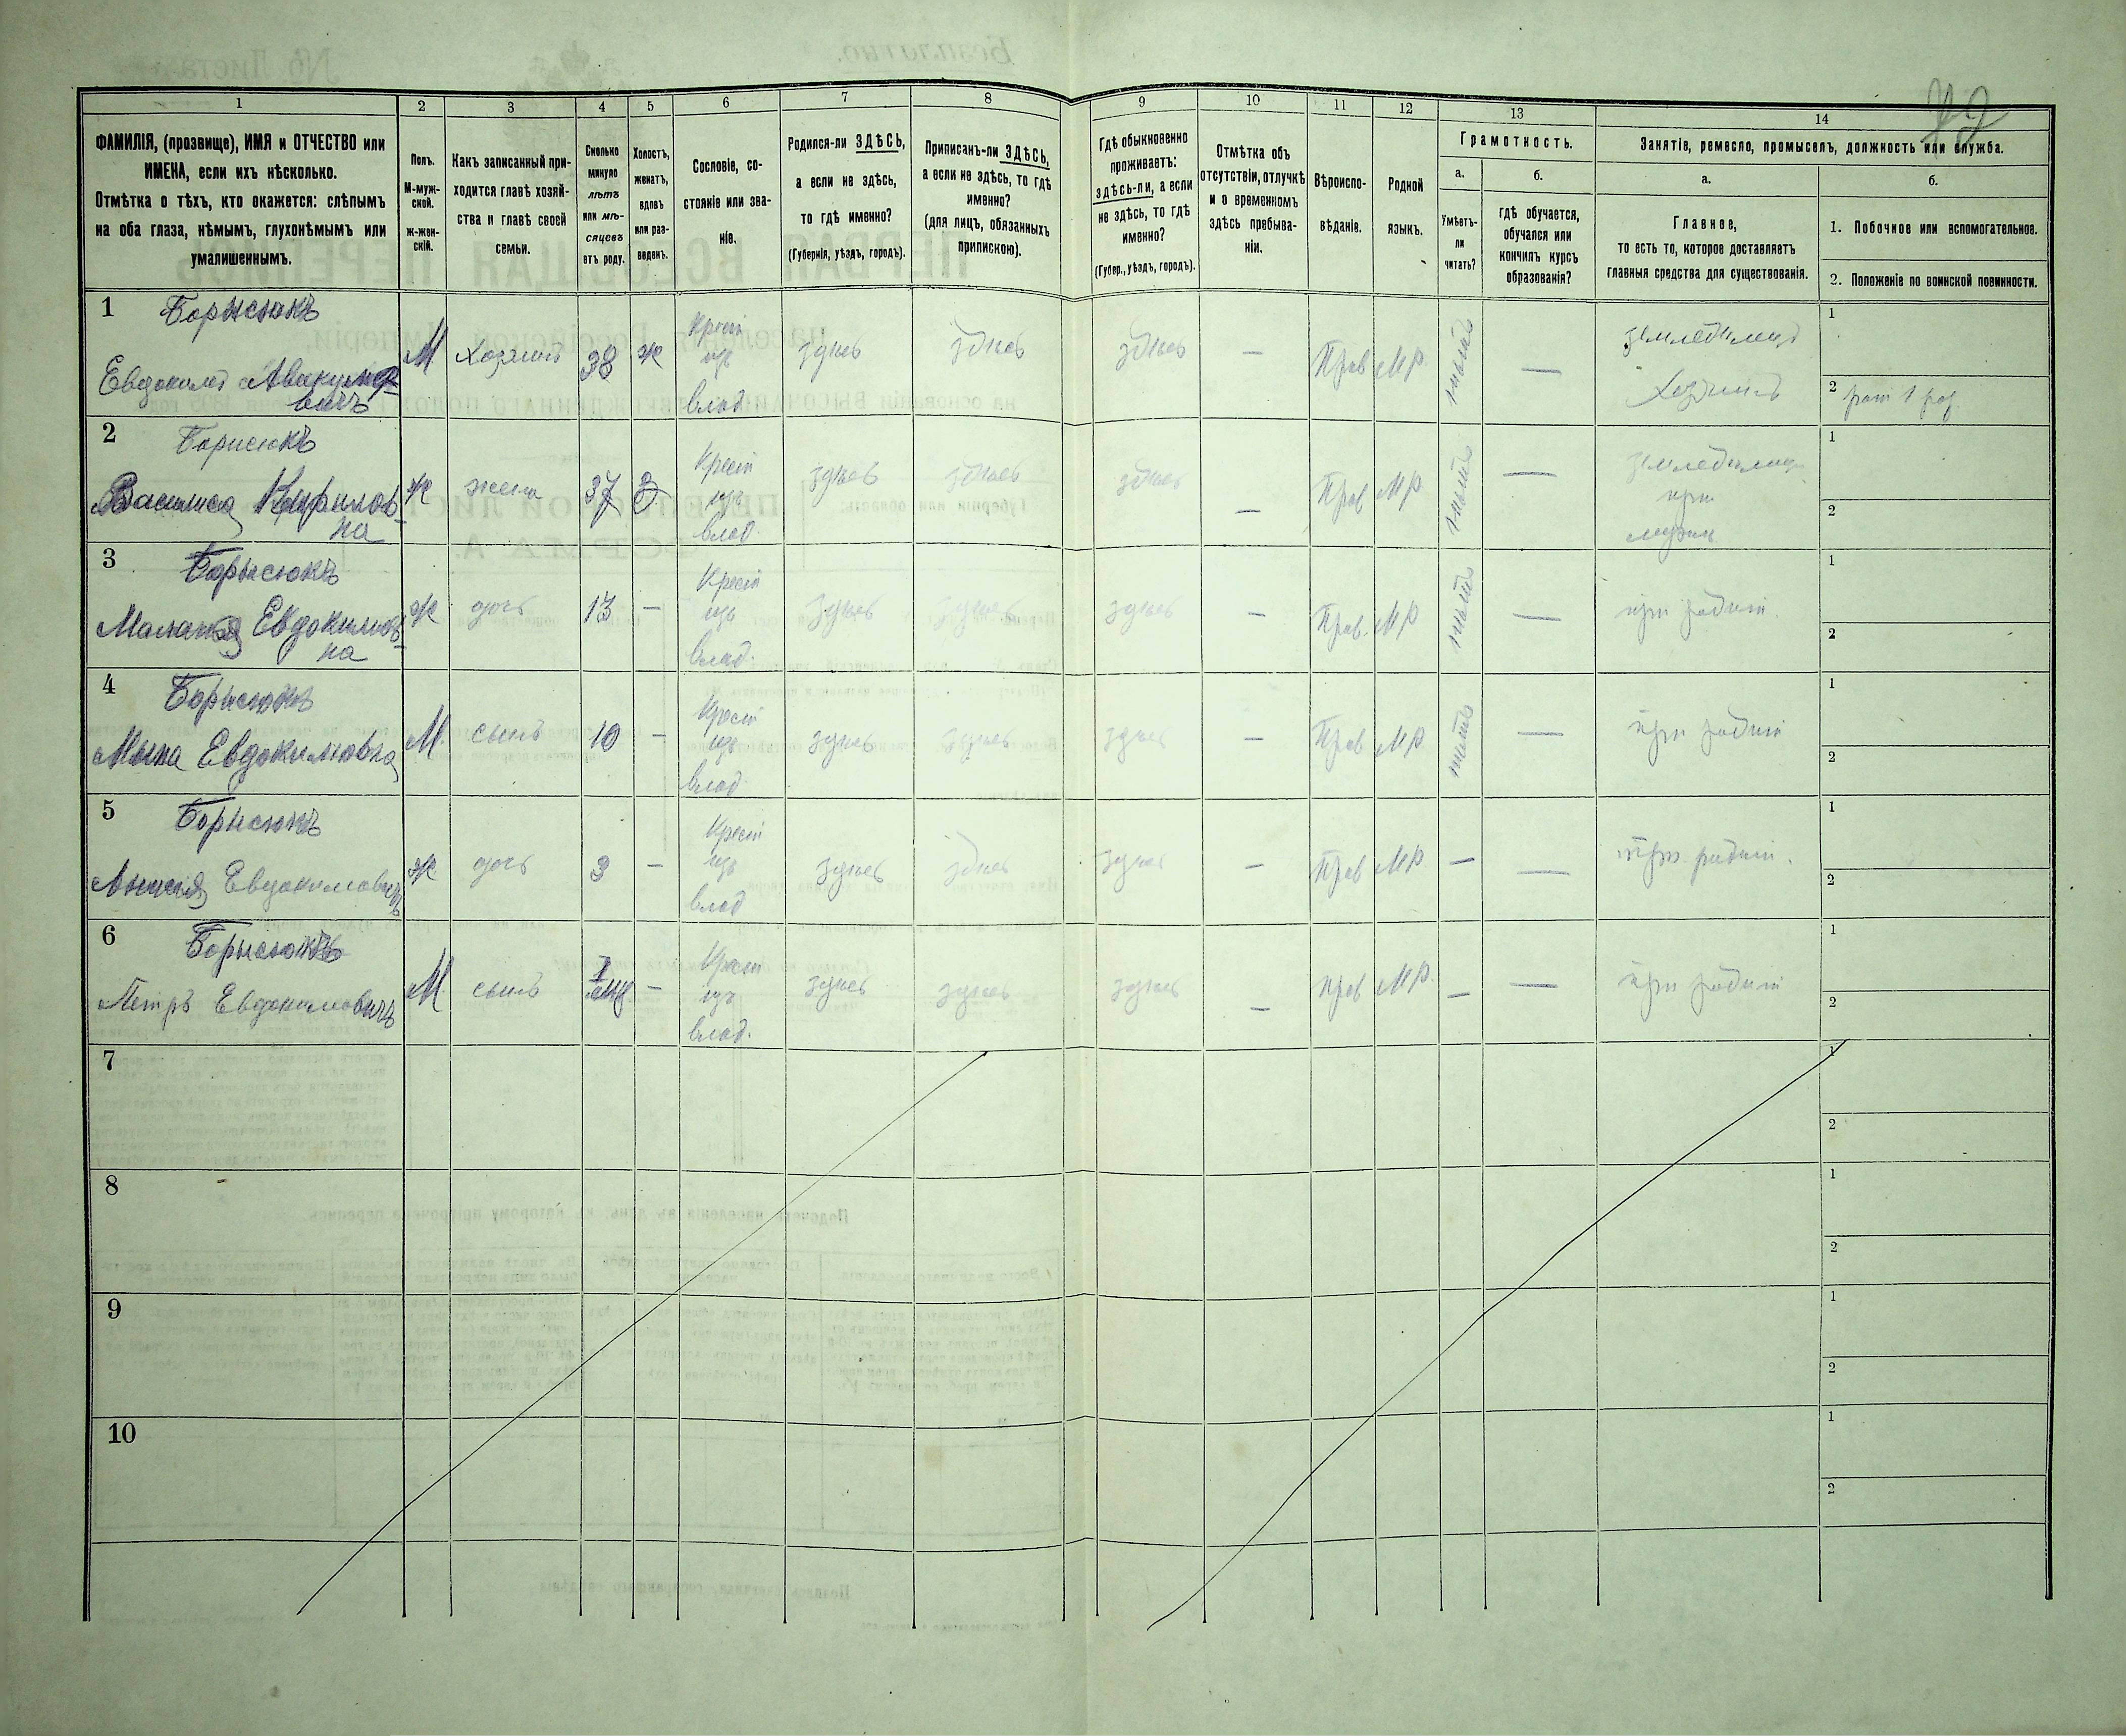 1 2 3 4 5 6 7 8 9 10 11 12 13 14
ФАМИЛІЯ, (прозвище), ИМЯ и ОТЧЕСТВО или
ИМЕНА, если ихъ нѣсколько.
Отмѣтка о тѣхъ, кто окажется: слѣпымъ
на оба глаза, нѣмымъ, глухонѣмымъ или
умалишеннымъ.
Полъ.
М-муж-
ской.
ж-жен-
скій.
Какъ записанный при-
ходится главѣ хозяй-
ства и главѣ своей
семьи.
Сколько
минуло
лѣтъ
или мѣ-
сяцевъ
отъ роду.
Холостъ,
женатъ,
вдовъ
или раз-
веденъ.
Сословіе, со-
стояніе или зва-
ніе.
Родился-ли ЗДѢСЬ,
а если не здѣсь,
то гдѣ именно?
(Губернія, уѣздъ, городъ).
Приписанъ-ли ЗДѢСЬ,
а если не здѣсь, то гдѣ
именно?
(для лицъ, обязанныхъ
припискою).
Гдѣ обыкновенно
проживаетъ:
здѣсь-ли, а если
не здѣсь, то гдѣ
именно?
(Губер., уѣздъ, городъ).
Отмѣтка объ
отсутствіи, отлучкѣ
и о временномъ
здѣсь пребыва-
ніи.
Вѣроиспо-
вѣданіе.
Родной
языкъ.
Грамотность.
а.
Умѣетъ-
ли
читать?
б.
гдѣ обучается,
обучался или
кончилъ курсъ
образованія?
Занятіе, ремесло, промыселъ, должность или служба.
а.
Главное,
то есть то, которое доставляетъ
главныя средства для существованія.
б.
1. Побочное или вспомогательное.
2. Положеніе по воинской повинности.
1 Борисюкъ
Евдокимъ Авакумо-
вичъ
М Хозяинъ 38 ж Крест
изъ
влад
здѣсь здѣсь здѣсь — Прав МР. нѣтъ —
земледѣлецъ
Хозяинъ
1
2
2 Борисюкъ
Василиса Кирилов-
на
ж жена 37 З Крест
изъ
влад.
здѣсь здѣсь здѣсь — Прав МР нѣтъ —
при
1
2
3 Борисюкъ
Маланія Евдокимов-
на
ж дочь 13 — Крест
изъ
влад.
здѣсь здѣсь здѣсь — Прав. МР нѣтъ —
при родит
1
2
4 Борисюкъ
М. сынъ 10 — Крест
изъ
влад.
здѣсь здѣсь здѣсь — Прав МР. нѣтъ
при родит
1
2
5 Борисюкъ
ж. дочь 3 — Крест
изъ
влад
здѣсь здѣсь здѣсь — Прав МР. — —
при родит.
1
2
6 Борисюкъ
Петръ Евдокимовичъ
М сынъ — Крест
изъ
влад.
здѣсь здѣсь здѣсь — Прав МР. — —
при родит
1
2
7
1
2
8
1
2
9
1
2
10
1
2